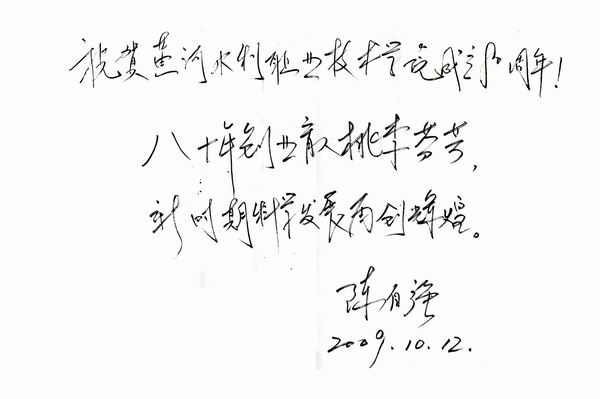 祝贺黄河水利职业技术学院成立80周年!
八十年创业育人桃李芬芳,
新时期科学发展再创辉煌。
陈自强
2009.10.12.